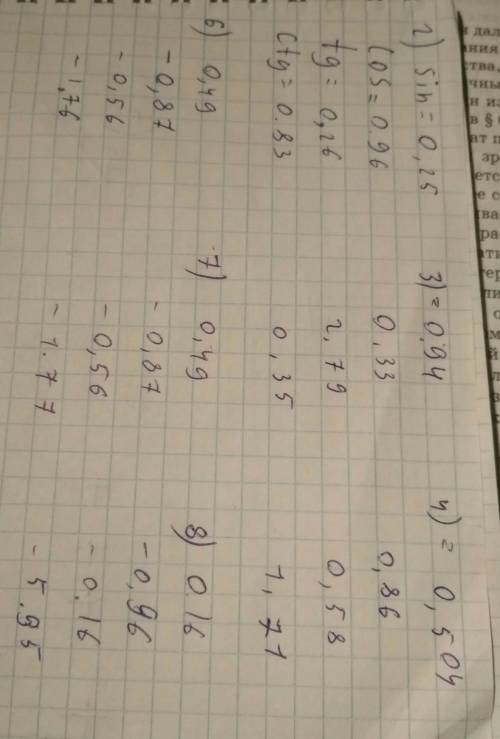 2) Sin = 0,25
Cos = 0.96
tg = 0,26
Ctg = 0.83
3) = 0.94
0,33
2,79
0,35
4) = 0,504
0,86
0,58
1,71
6) 0,49
-0,87
-0,56
-1,76
7) 0,49
-0,87
-0,56
-1.77
8) 0.16
-0,96
-0.16
-5.95